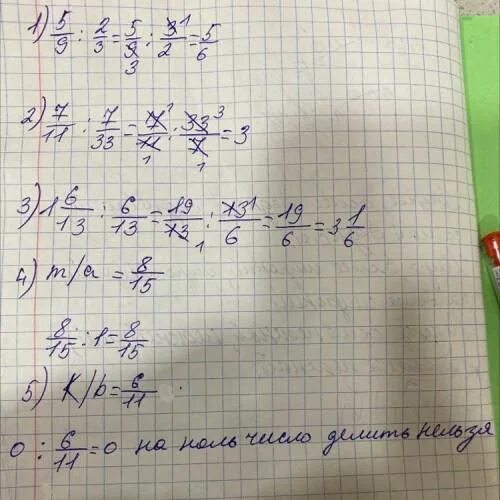 1) 5/9 : 2/3 = 5/9 3 : 3 1/2 = 5/6
2) 7/11 : 7/33 = 7 1/11 1 : 33 3/7 1 = 3
3) 1 6/13 : 6/13 = 19/13 1 : 13 1/6 = 19/6 = 3 1/6
4) m/a = 8/15
8/15 : 1 = 8/15
5) K/b = 6/11
0 : 6/11 = 0 на ноль число делить нельзя